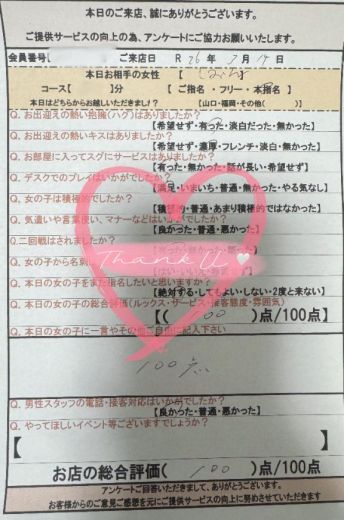 本日のご来店、誠にありがとうございます。
ご提供サービスの向上の為、アンケートにご協力お願いいたします。
会員番号( ご来店日 R 26年 3月 17日
本日お相手の女性 【
コース【 】分 【 ご指名・フリー・本指名】
本日はどちらからお越しいただきまし? 【山口・福岡・その他( )】
Q. お出迎えの熱い抱擁(ハグ)はありましたか?
【希望せず・有った・淡白だった・無かった】
Q. お出迎えの熱いキスはありましたか?
【希望せず・濃厚・フレンチ・淡白・無かった】
Q. お部屋に入ってスグにサービスはありましたか?
【有った・無かった・話が長い・希望せず】
Q. デスクでのプレイはいかがでしたか?
【満足・いまいち・普通・無かった・やる気なし】
Q. 女の子は積極的でしたか?
【積極的・普通・あまり積極的ではなかった】
Q. 気遣いや言葉使い、マナーなどはいかがでしたか?
【良かった・普通・悪かった】
Q. 二回戦はされましたか?
Thank U
Q. 女の子から名刺
Q. 本日の女の子をまた指名したいと思いますか?
【絶対する・してもよい・しない・2度と来ない】
Q. 本日の女の子の総合評価(ルックス・サービス・接客態度・雰囲気)
【( 100 )点/100点】
Q. 本日の女の子に一言やその他ご自由に記入下さい
100点
Q. 男性スタッフの電話・接客対応はいかがでしたか?
【良かった・普通・悪かった】
Q. やってほしいイベント等ございますでしょうか?
お店の総合評価( 100 )点/100点
アンケートご回答いただきまして、ありがとうございます。
お客様からのご意見ご感想を元にご提供サービスの向上に努めさせていただきます